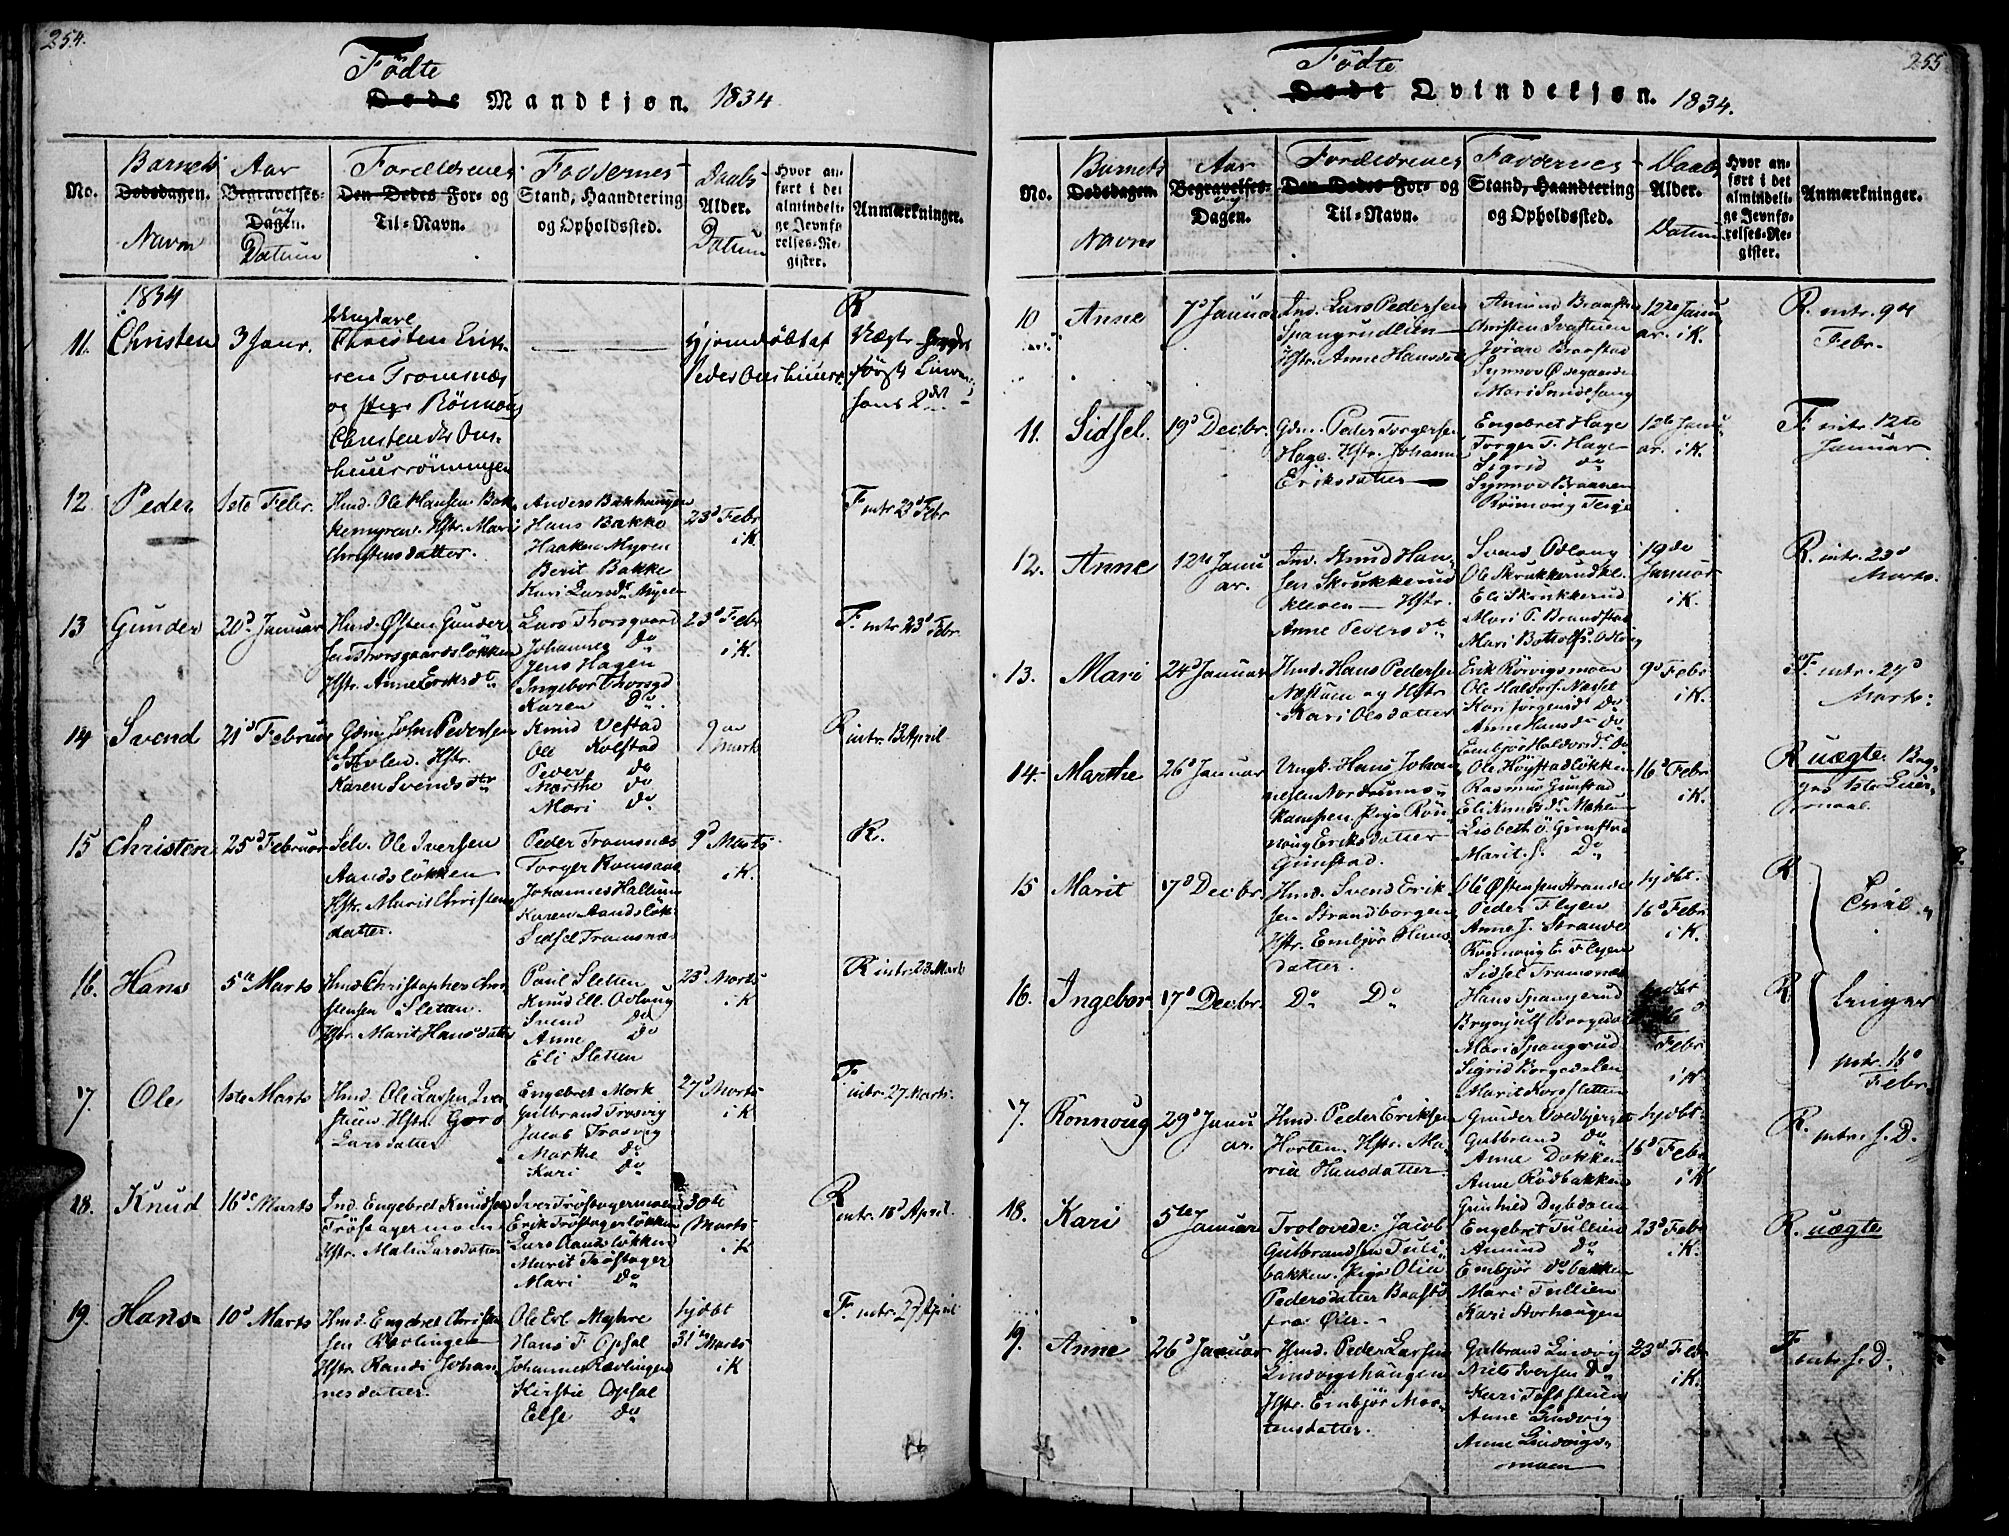 254.
Födte
Døde Mandkjøn. 1834
No.
Barnets
Dødsdagen.
Navn
Aar
Begravelses-
og
Dagen.
Datum
Forældrenes
Den Dødes For- og
Til-Navn.
Faddernes
Stand, Haandtering
og Opholdssted.
Daabs
Alder.
Datum
Hvor an-
ført i det
almindeli-
ge Jevnfø-
relses-Re-
gister.
Anmærkninger.
1834
11. Christen 3 Janr.
Ungkarl
Christen Erik-
sen Tromsnæs
og Pige Rönnoug
Christensdr Ons-
huusrönningen
Hjemdöbt af
Peder Onshuus
R
Uægte
12. Peder 1ste Febr.
Hmd. Ole Hansen Bak-
kemyren. Hstr. Mari
Christensdatter.
Anders Bakhaugen
Hans Bakke
Haaken Myren
Berit Bakke
Kari Larsdr Myren
23d Febr
i K.
F intr 23d Febr
13 Gunder 20d Januar
Hmd. Østen Gunder-
sen Thorsgaardslökken
Hstr. Anne Eriksdr
Lars Thorsgaard
Johannes Do
Jens Hagen
Ingebor Thorsgd
Karen Do.
23d Febr
i K.
F. intr 23d Febr.
14 Svend 21d Februar
Gdm. John Pedersen
Hstr.
Karen Svendsdtr
Knud Vestad
Ole Kolstad
Peder do
Marthe do
Mari do
9de
Marts
R intr. 13 April
15 Christen 25d Februar
Selv. Ole Iversen
Aandslökken
Hstr. Marit Christens-
datter.
Peder Tromsnæs
Torger Romsaas
Johannes Hallum
Karen Aandslök.
Sidsel Tromsnæs
9d Marts
i K.
R.
16. Hans 5te Marts
Hmd Christopher Chri-
stensen Sletten.
Hstr. Marit Hansdatter
Poul Sletten
Knud Ell. Odloug
Svend Do
Anne Do
Eli Sletten
23d Marts
i K
R intr. 23 Marts
17. Ole 1ste Marts
Hmd. Ole Larsen
Hstr. Goro
Larsdatter
Engebret Mork
Gulbrand Trosvig
Jacob Trosvig
Marthe Do
Kari Do
27d Marts
i K
F
intr. 27 Marts.
18. Knud 16de Marts
Ind. Engebret Knudsen
Tröstagermoden
Hstr. Mali Larsdatter
Iver Tröstagermoden
Erik Tröstagerlökken
Lars Aandslökken
Marit Tröstager
Mari Do
30te
Marts
i K
R
intr. 18d April.
19. Hans 10d Marts
Hmd. Engebret Christen-
sen Rævlingen
Hstr. Randi Johan-
nesdatter.
Ole Erl. Myhre
Hans F. Opsal
Johannes Rævlingen
Kirstie Opsal
Else Do
hjdbt
31te Marts
i K
F. intr. 27d April
255
Födte
Døde Qvindekjøn. 1834.
No.
Barnets
Dødsdagen.
Navn
Aar
Begravelses-
og
Dagen.
Forældrenes
Den Dødes For- og
Til-Navn.
Faddernes
Stand, Haandtering
og Opholdssted.
Daabs
Alder.
Datum
Hvor an-
ført i det
almindeli-
ge Jevnfø-
relses-Re-
gister.
Anmærkninger.
10 Anne 7d Januar
Ind. Lars Pedersen
Spangrudlien
Hstr. Anne Hansdatr
Amund Braastad
Christen Ivastuen
Jöran Braastad
Synnov Ødegaarden
12te Janu-
ar. i K.
R. intr. 9de
Febr.
11. Sidsel. 19d Decbr.
Gdm. Peder Torgersen
Hage. Hstr. Johanne
Eriksdatter
Engebret Hage
Torger T. Hage
Sigrid do
Synnov Braanen
12te Janu-
ar. i K.
F intr. 12te
Januar
12. Anne 12te Janu-
ar.
Ind. Knud Han-
sen Skrukkerud-
kleven Hstr.
Anne Pedersdr
Svend Odloug
Ole Skrukkerudkl.
Eli Skrukkerud
Mari P. Braastad
Mari Bottolfs. Odloug
19de
Januar
i K.
R. intr. 23d
Marts.
13. Mari 24d Januar
Hmd. Hans Pedersen
Næstuen og Hstr
Kari Olsdatter
Ole Haldors. Næset
Kari Jorgensdr Do
Anne Hansdr do
Embjör Haldorsdr Do
9d Febr
i K.
F. intr. 27d
Marts.
14. Marthe 26d Januar
Ungk. Hans Johan-
nesen Nordrums-
kampen. Pige Rön-
noug Eriksdatter
Gunstad.
Ole Höystadlökken
Rasmus Gunstad
Eli Knudsdr Moken
Lisbeth Ö. Gunstad
Marit J. Do
16d Febr.
i K.
R uægte. Beg-
ges 1ste Leier-
maal.
15 Marit 17d Decbr
Hmd. Svend Erik-
sen Strandborgen
Hstr. Embjör Hans-
datter.
Ole Østensen Strande
Peder Flyen
Anne J. Strande
Rönnoug E. Flyen
Sidsel Tromsnæs
hjdbt.
16d Febr.
i K.
R
Tvil-
16. Ingebor 17d Decbr.
Do Do
Hans Spangrud
Brynjulf Borgedalen
Mari Spangrud
Sigrid Borgedalen
Marit Korsstetten
hjdbt
Febr
i K
R
linger
intr. 16d
Febr.
17. Rönnoug 29d Janu-
ar.
Hmd. Peder Eriksen
Horten. Hstr. Ma-
ria Hansdatter.
Gunder Voldbjerget
Gulbrand Do
Anne Dokken
Anne Rödbakken
Gunhild Dybdalen
hjdbt.
16d Febr
i K
R. intr. s. D.
18. Kari 5te
Januar
Trolovede: Jacob
Gulbrandsen Tuli-
bakken. Pige Olia
Pedersdatter Braastd
fra Öier.
Engebret Tullien
Amund Do
Embjör do bakken
Mari Tullien
Kari Storhaugen
23d Febr
i K.
R. uægte
19. Anne 26d Januar
Hmd. Peder Larsen
Lindvigshaugen
Hstr. Embjör Mor-
tensdatter.
Gulbrand Lindvig
Niels Iversen Do
Kari Toftstuen
Anne Lindvig
Anne Lindvigs-
moen
23d Febr.
i K.
F. intr. s. D.